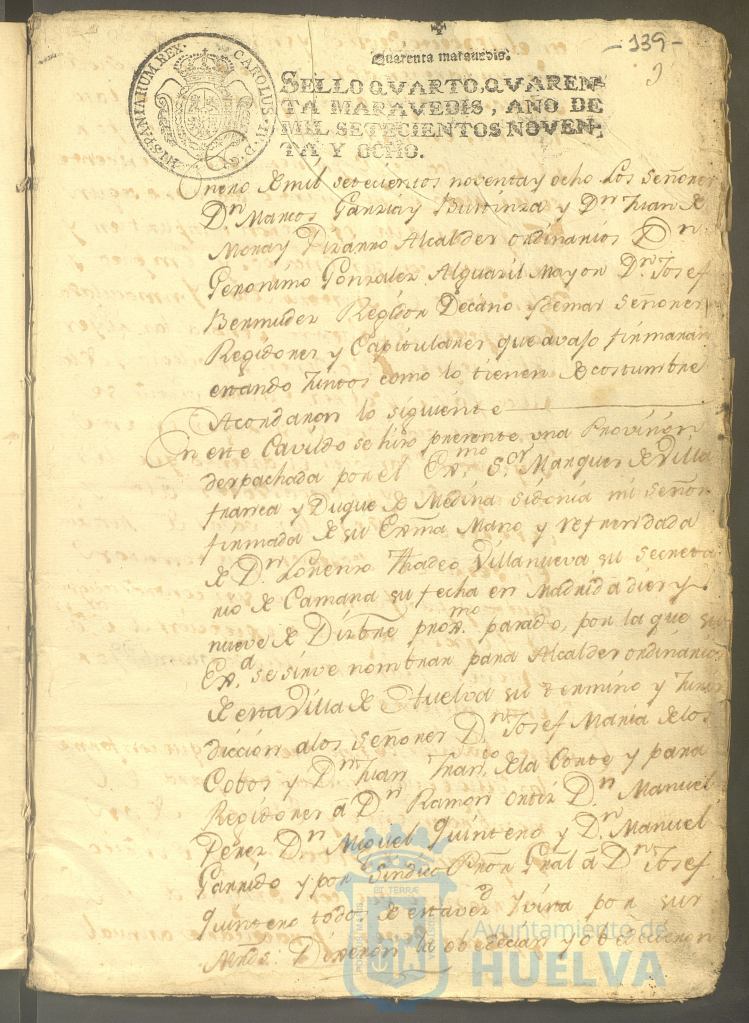 -139-
9
Quarenta maravedis.
HISPANIARUM.REX. CAROLUS.IV.D.G.
SELLO QVARTO, QVAREN-
TA MARAVEDIS, AÑO DE
MIL SETECIENTOS NOVEN-
TA Y OCHO.
Enero de mil setecientos noventa y ocho los señores
Dn Marcos Garzia y y Dn Juan de
Mora y Pizarro Alcaldes ordinarios Dn
Geronimo Gonzalez Alguazil Mayor Dn Josef
Bermudez Regidor Decano y demas señores
Regidores y Capitulares que avajo firmaran
estando juntos como lo tienen de costumbre
Acordaron lo siguiente
En este Cavildo se hizo presente una Provision
despachada por el Exmo Sor Marques de Villa
franca y Duque de Medina sidonia mi señor
firmada de su Exma Mano y refrendada
de Dn Lorenzo Thadeo Villanueva su secreta
rio de Camara su fecha en Madrid a diez y
nueve de Dizbre proxmo pasado, por la que su
Exa se sirve nombrar para Alcaldes ordinarios
de esta Villa de Huelva su termino y Juris
diccion a los señores Dn Josef Maria de los
Cobos y Dn Juan Franco de la Corte y para
Regidores â Dn Ramon Ortiz Dn Manuel
Perez Dn Miguel Quintero y Dn Manuel
Garrido y por Sindico Pror Gral â Dn Josef
Quintero todos de esta vezd y vista por sus
Mrds. Dixeron la obedecian y obedecieron
ET TERRAE
Ayuntamiento de
HUELVA